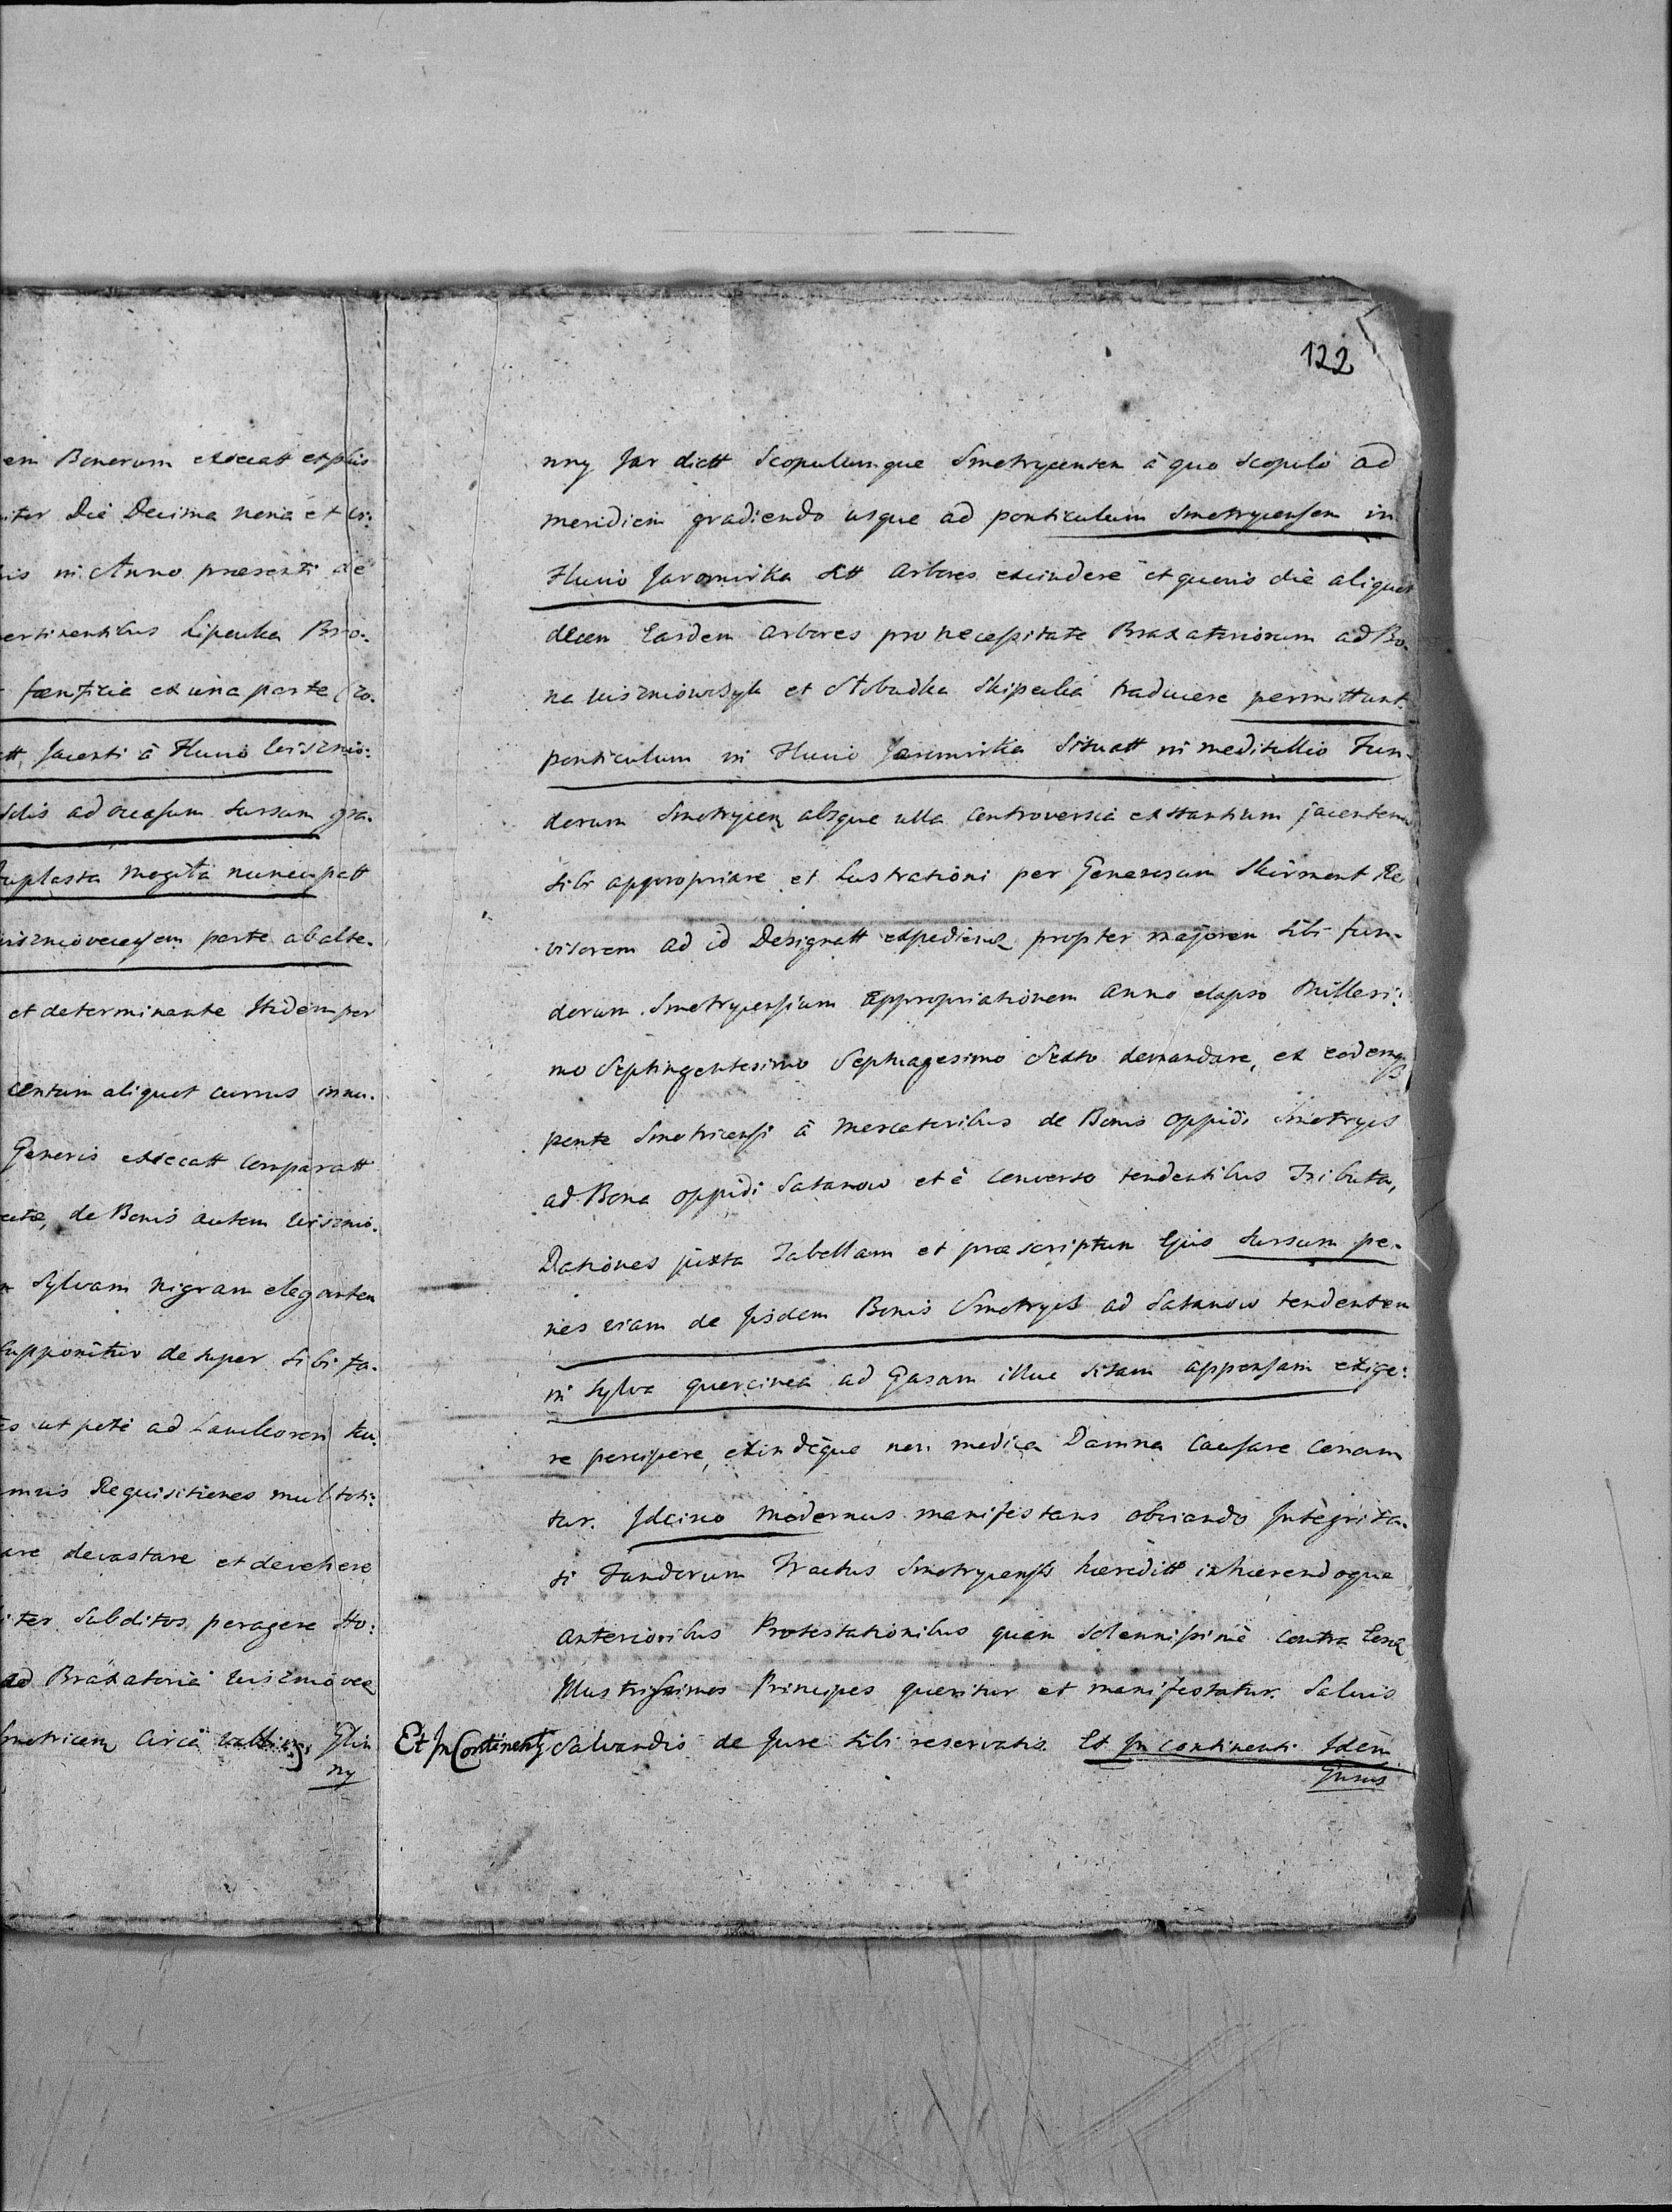 122
em Bonorum exsecatt et plus
iter Die Decima nona et
is in Anno praesenti de
ertinentibus Lipeuka Bro-
faenificia ex una parte
tt, Jacenti â Fluvio Wisznio:
solis ad occasum sursum gra-
Mogiła nuncupatt
parte ab alte-
et determinante Itidem per
centum aliquot currus innu-
Generis exsecatt comparatt
de Bonis autem Wisznio-
Sylvam nigram elegantem
supponitur desuper sibi fa-
ut pote ad
Requisitiones multoti:
are devastare et devehere
iter Subditos peragere
ad Braxatoria
circa
ny
nny Jar dictt Scopulumque Smotrycensem â quo scopulo ad
meridiem gradiendo usque ad ponticulum Smotrycensem in
Fluvio Jaromirka sitt arbores excindere et quovis die aliquot
decem Easdem arbores pro necessitate Braxatoriorum ad Bo-
na et Słobudka traducere permittunt.
ponticulum in Fluvio Jaromirka Situatt in meditullio Fun-
dorum Smotrycen absque ulla controversia exstantium jacentem
sibi appropriare et Lustrationi per Generosum Skirmont Re
visorem ad id Designatt propter majorem sibi fun-
dorum Smotrycensium appropriationem anno elapso Millesi:
mo Septingentesimo Septuagesimo Sexto demandare, ex eodemq
ponte Smotricensi â Mercatoribus de Bonis oppidi Smotrycz
ad Bona oppidi Satanow et è converso tendentibus Tributa,
Dationes juxta Tabellam et praescriptum Ejus sursum pe-
nes viam de Iisdem Bonis Smotrycz ad Satanow tendentem
in sylva quercinea ad illuc sitam appensam exige:
re percipere, exindèque non modica Damna causare conan
tur. Idcirco modernus manifestans obviando Integrita-
ti Fundorum Tractus Smotrycensis haereditt inhaerendoque
anterioribus Protestationibus quam solennissimè contra Eosq
Illustrissimos Principes queritur et manifestatur. Salvis
Et In Continenti Salvandis de Jure sibi reservatis. Et In continenti Idem